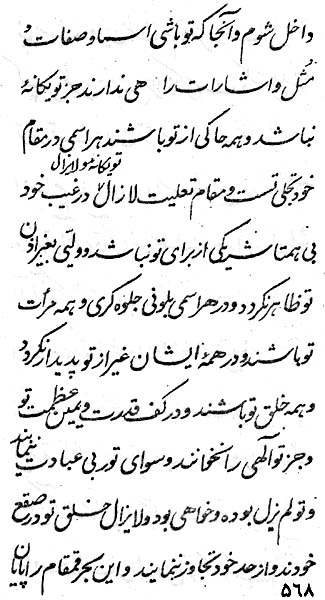 داخل شوم و آنجا که تو باشی اسما و صفات و
مُثل و اشارات را هی ندارند جز تو یگانهٔ
نباشد و همه حاکی از تو باشند هر اسمی در مقام
تو یگانه و لایزال
خود تجلی تست و مقام تعلیت لازال در غیب خود
بی همتا شریکی از برای تو نباشد و ولیّی بغیر اذن
تو ظاهر نگردد و در هر اسمی بلونی جلوه کری و همه مرآت
تو باشند و در همهٔ ایشان غیر از تو پدیدار نگردد
و همه خلق تو باشند و در کف قدرت و یمین عظمت تو
و جز تو آلهی را نخوانند و سوای تو ربی عبادت ننمایند
و تو لم یزل بوده و خواهی بود و لایزال خلق تو در صقع
خودند و از حد خود تجاوز ننمایند و این بحر قمقام را پایان
۵۶۸